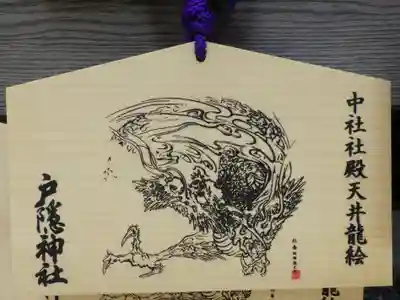 中社社殿天井龍絵
戸隠神社